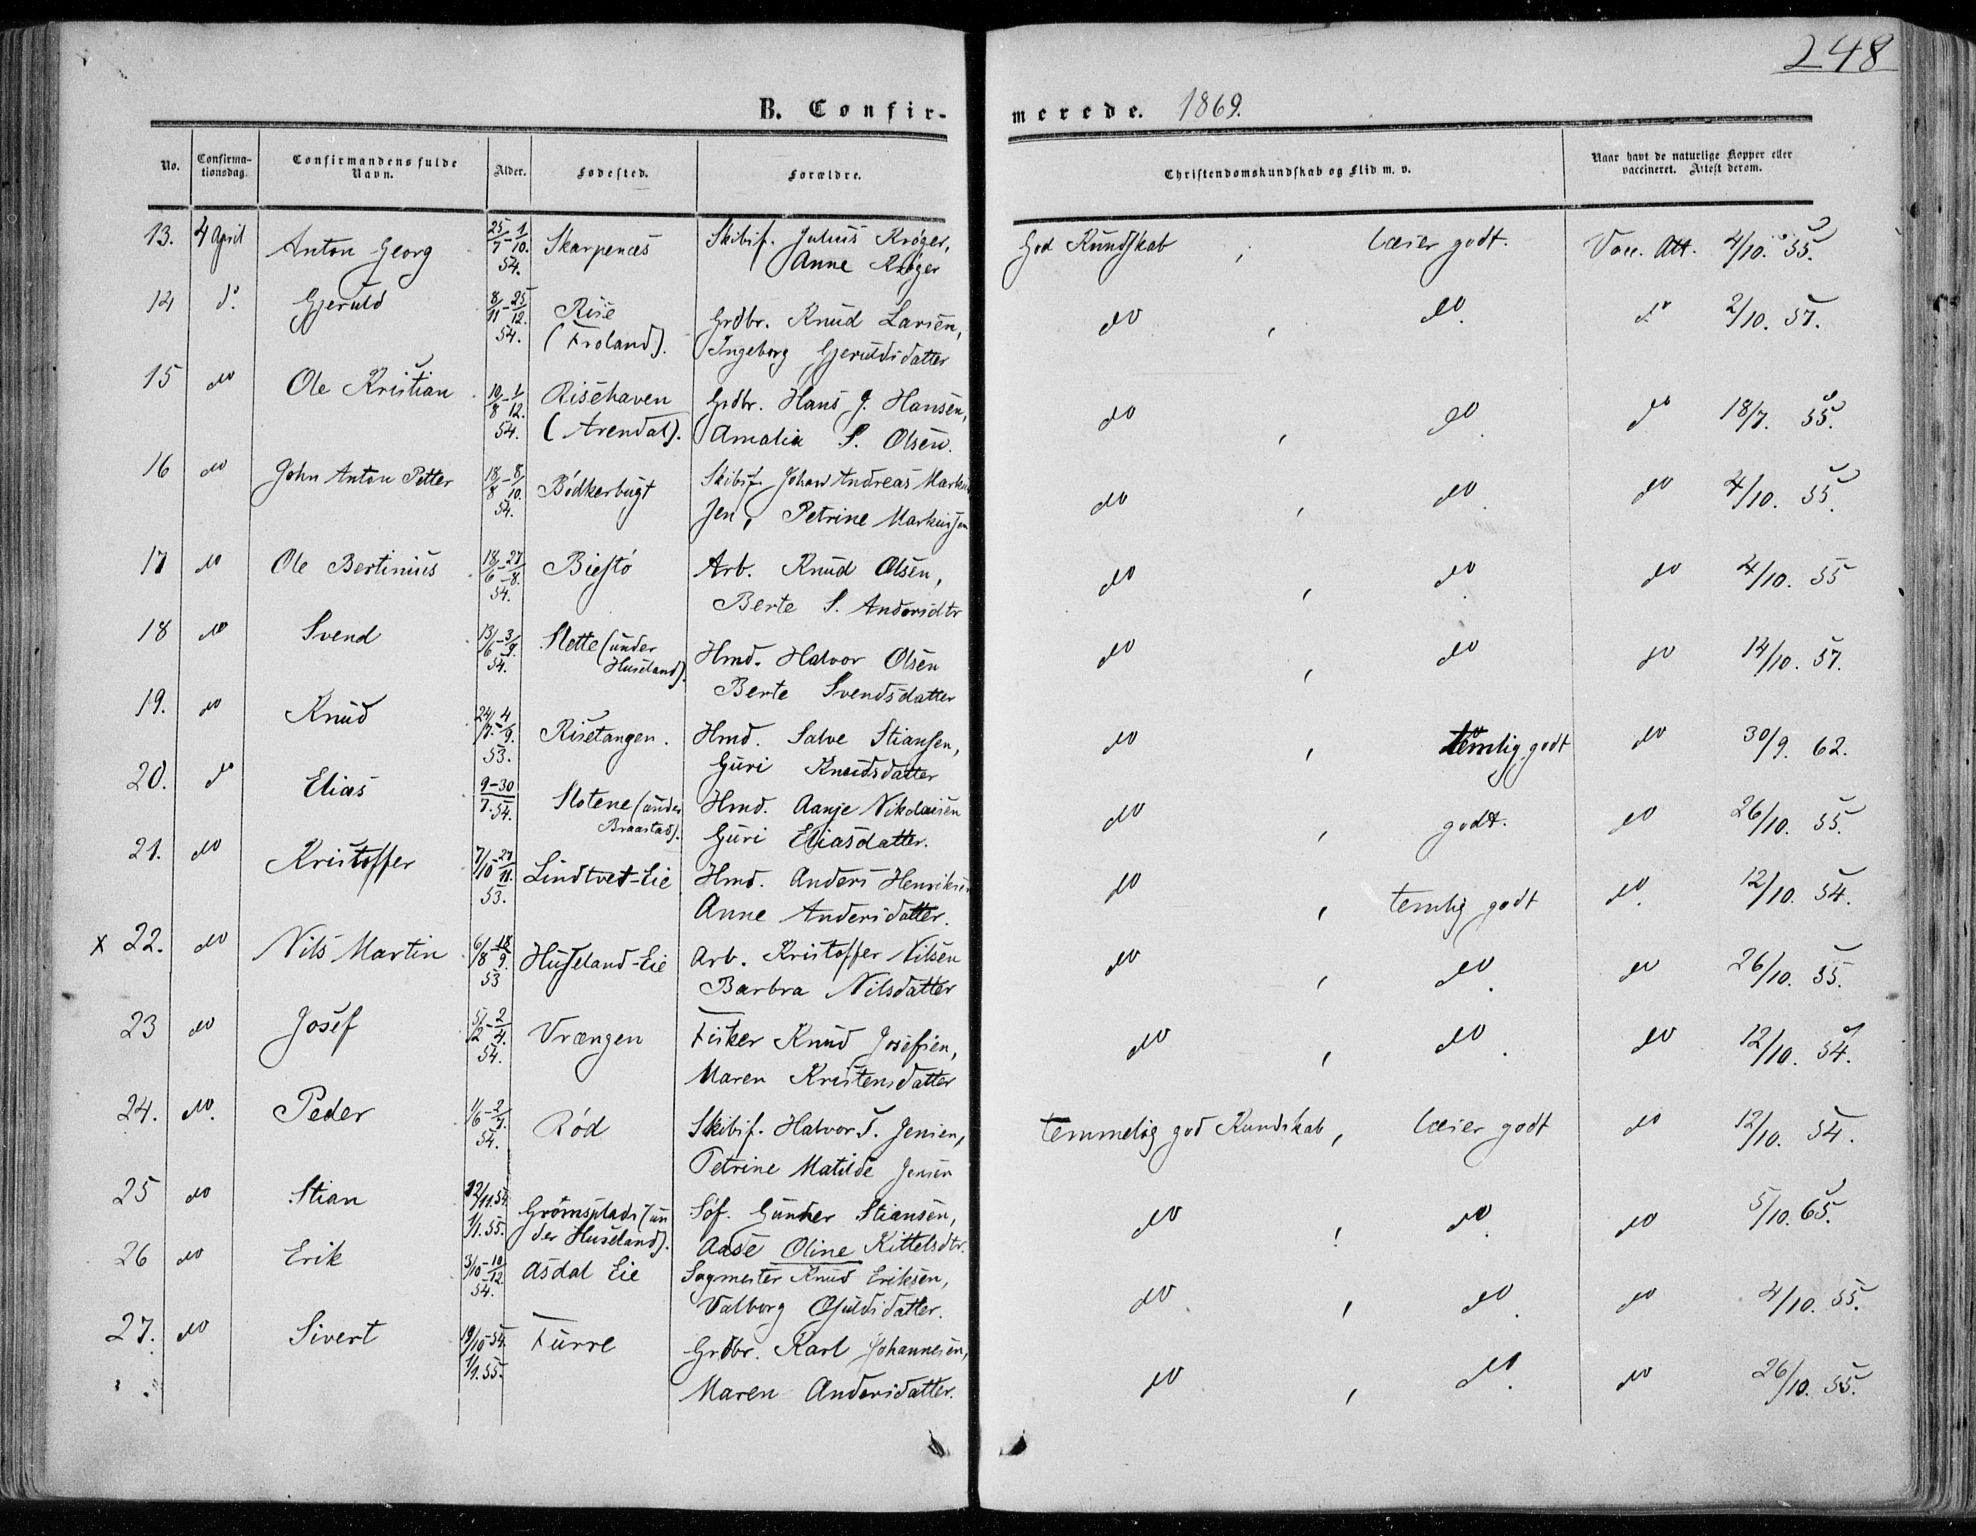 248
B. Confirmerede. 1869.
No.
Confirmationsdag.
Confirmandens fulde Navn.
Alder.
Fødested.
Forældre.
Christendomskundskab og Flid m. v.
Naar havt de naturlige Kopper eller vaccineret. Attest derom.
13. 4 April Anton Georg 25/7-1/10. 54. Skarpenæs Skibsf. Julius Krøger, God Kundskab, læser godt. Vacc. Att. 4/10. 55.
Anne Krøger
14 do Gjeruld 8/11-25/12. 54. Rise (Froland). Grdbr. Knud Larsen, do, do. do 2/10. 57.
Ingeborg Gjeruldsdatter
15 do Ole Kristian 10/8-1/12. 54. Risehaven (Arendal). Grdbr. Hans J. Hansen, do, do. do 18/7. 55.
Amalia S. Olsen.
16 do John Anton Petter 18/8-8/10. 54. Bødkerbugt Skibsf. Johan Andreas Marku- do, do. do 4/10. 55.
sen, Petrine Markussen
17 do Ole Bertinius 18/6-27/8. 54. Biestø Arb. Knud Olsen, do, do. do 4/10. 55
Berte S. Andersdtr
18 do Svend 13/6-3/9. 54. Slette (under Huseland). Hmd. Halvor Olsen do, do do 14/10. 57.
Berte Svendsdatter
19. do Knud 24/7-4/9. 53. Risetangen. Hmd. Salve Stiansen, do, temlig godt do 30/9. 62.
Guri Knudsdatter
20. do Elias 9-30/7. 54. Slotene (under Braastad). Hmd. Aanje Nikolaisen do, godt. do 26/10. 55.
Guri Eliasdatter.
21. do Kristoffer 7/10-27/11. 53. Lindtvet-Eie Hmd. Anders Henriksen do, temlig godt do. 12/10. 54.
Anne Andersdatter.
x 22. do Nils Martin 6/8-18/9. 53 Huseland-Eie Arb. Kristoffer Nilsen do, do. do 26/10. 55.
Barbra Nilsdatter
23 do Josef 5/2-2/4. 54. Vrængen Fisker Knud Josefsen, do, do. do 12/10. 54.
Maren Kristensdatter
24. do. Peder 1/6-2/7. 54. Rød Skibsf. Halvor T. Jensen, temmelig god Kundskab, læser godt do 12/10. 54.
Petrine Matilde Jensen
25 do Stian 22/11. 54. 1/1. 55. Grømsplads (under Huseland). Søf. Gunder Stiansen, do, do. do 5/10. 65.
Aase Oline Kittelsdtr.
26 do Erik 3/10-10/12. 54. Asdal Eie Sagmester Knud Eriksen, do, do. do 4/10. 55.
Valborg Osuldsdatter.
27. do Sivert 19/10 54. 1/1. 55. Furre Grdbr. Karl Johannesen, do, do. do 26/10. 55.
Maren Andersdatter.